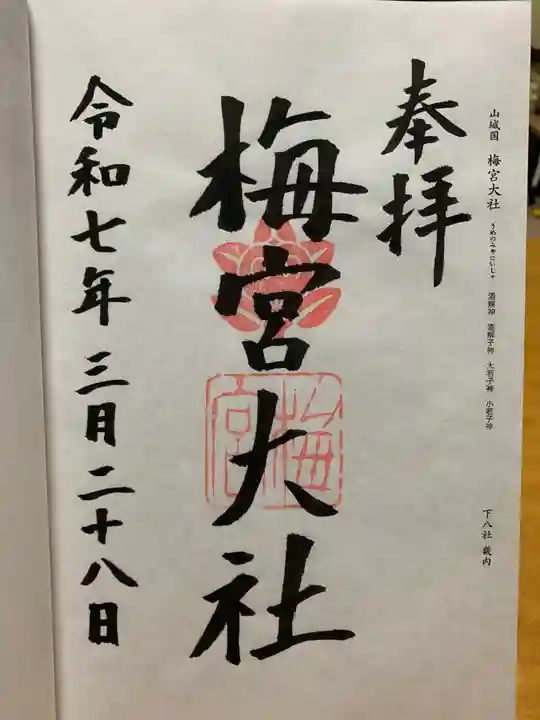 山城国 梅宮大社 うめのみやたいしゃ 酒解神 酒解子神 大若子神 小若子神
下八社 畿内
奉拝
梅宮大社
梅宮
令和七年三月二十八日